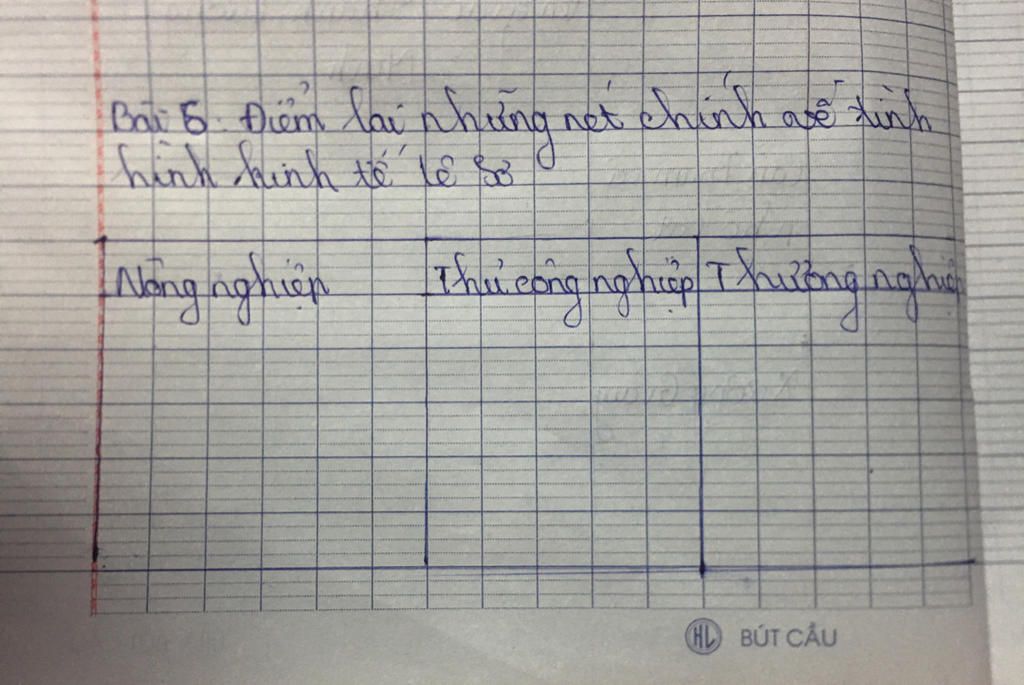 Bài 5. Điểm lại những nét chính về tình
hình kinh tế lê sơ
Nông nghiệp
Thủ công nghiệp
Thương nghiệp
HL BÚT CẦU